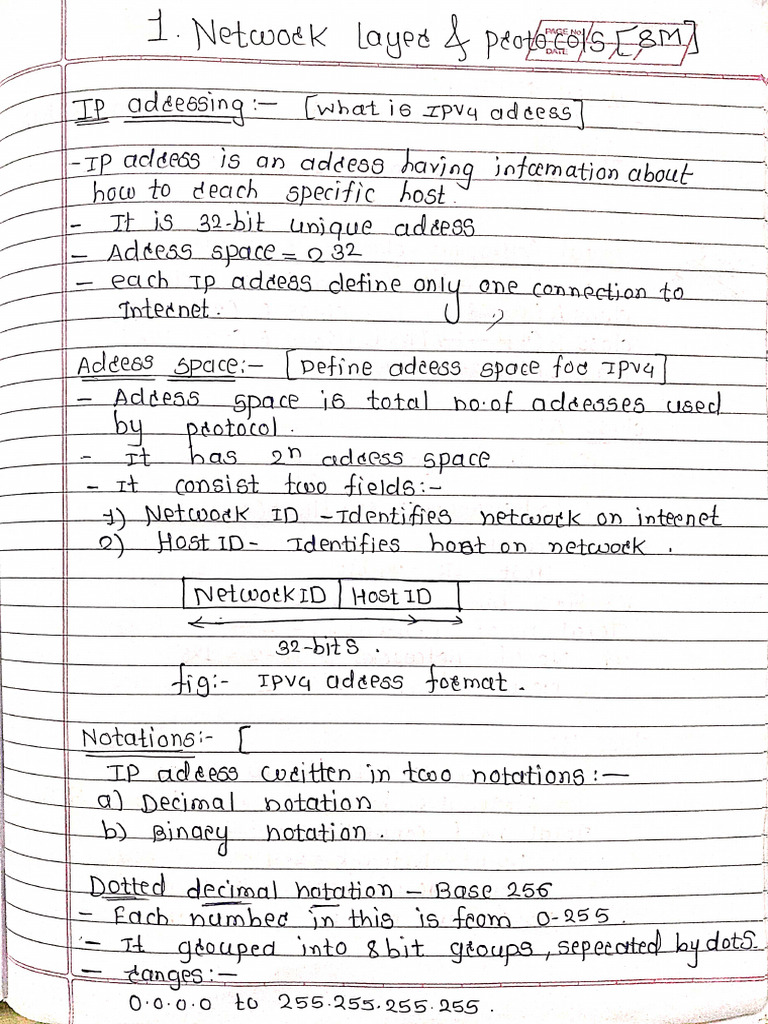 1. Network layer & protocols [8M]
PAGE No.
DATE
IP addressing:- [What is IPV4 address]
- IP address is an address having information about
how to reach specific host.
- It is 32-bit unique address
- Address space = 232
- each IP address define only one connection to
Internet.
Address space:- [Define address space for IPV4]
- Address space is total no. of addresses used
by protocol.
- It has 2n address space
- It consist two fields:-
1) Network ID - Identifies network on internet
2) Host ID - Identifies host on network.
Network ID Host ID
32-bits.
fig:- IPV4 address format.
Notations:- [
IP address written in two notations:-
a) Decimal notation
b) Binary notation.
Dotted decimal notation - Base 256
- Each number in this is from 0-255.
- It grouped into 8 bit groups, seperated by dots.
- ranges:-
0.0.0.0 to 255.255.255.255.